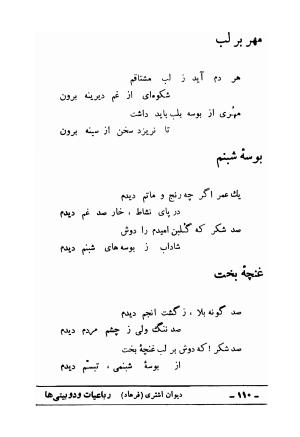 مهر بر لب
هر دم آید ز لب مشتاقم
شکوه‌ای از غم دیرینه برون
مهُری از بوسه بلب باید داشت
تا نریزد سخن از سینه برون
بوسهٔ شبنم
یك عمر اگر چه رنج و ماتم دیدم
در پای نشاط ، خار صد غم دیدم
صد شکر که گلبن امیدم را دوش
شاداب ز بوسه‌های شبنم دیدم
غنچهٔ بخت
صد گونه بلا ، ز گشت انجم دیدم
صد ننگ ولی ز چشم مردم دیدم
صد شکر ! که دوش بر لب غنچهٔ بخت
از بوسهٔ شبنمی ، تبسّم دیدم
ـ ۱۱۰ ـ دیوان اشتری (فرهاد) رباعیات و دوبیتی‌ها